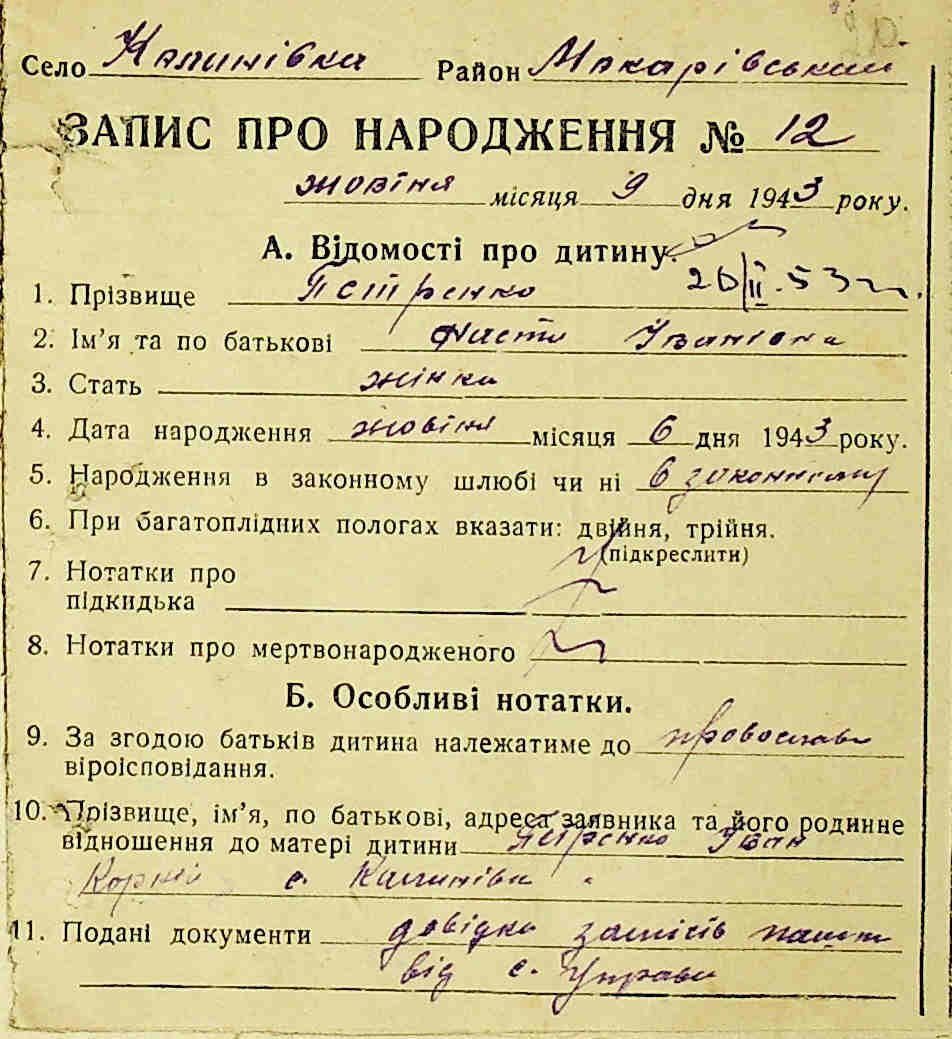 Село Калинівка Район Макарівський
ЗАПИС ПРО НАРОДЖЕННЯ № 12
жовтня місяця 9 дня 1943 року.
А. Відомості про дитину.
20/II.53 г.
1. Прізвище Петренко
2. Ім’я та по батькові Настя Іванівна
3. Стать жінка
4. Дата народження жовтня місяця 6 дня 1943 року.
5. Народження в законному шлюбі чи ні в законному
6. При багатоплідних пологах вказати: двійня, трійня.
(підкреслити)
7. Нотатки про
підкидька
8. Нотатки про мертвонародженого
Б. Особливі нотатки.
9. За згодою батьків дитина належатиме до православ
віроісповідання.
10. Прізвище, ім’я, по батькові, адреса заявника та його родинне
відношення до матері дитини Петренко Іван
Корній с. Калинівка
11. Подані документи довідка замісць пашп
від с. Управи